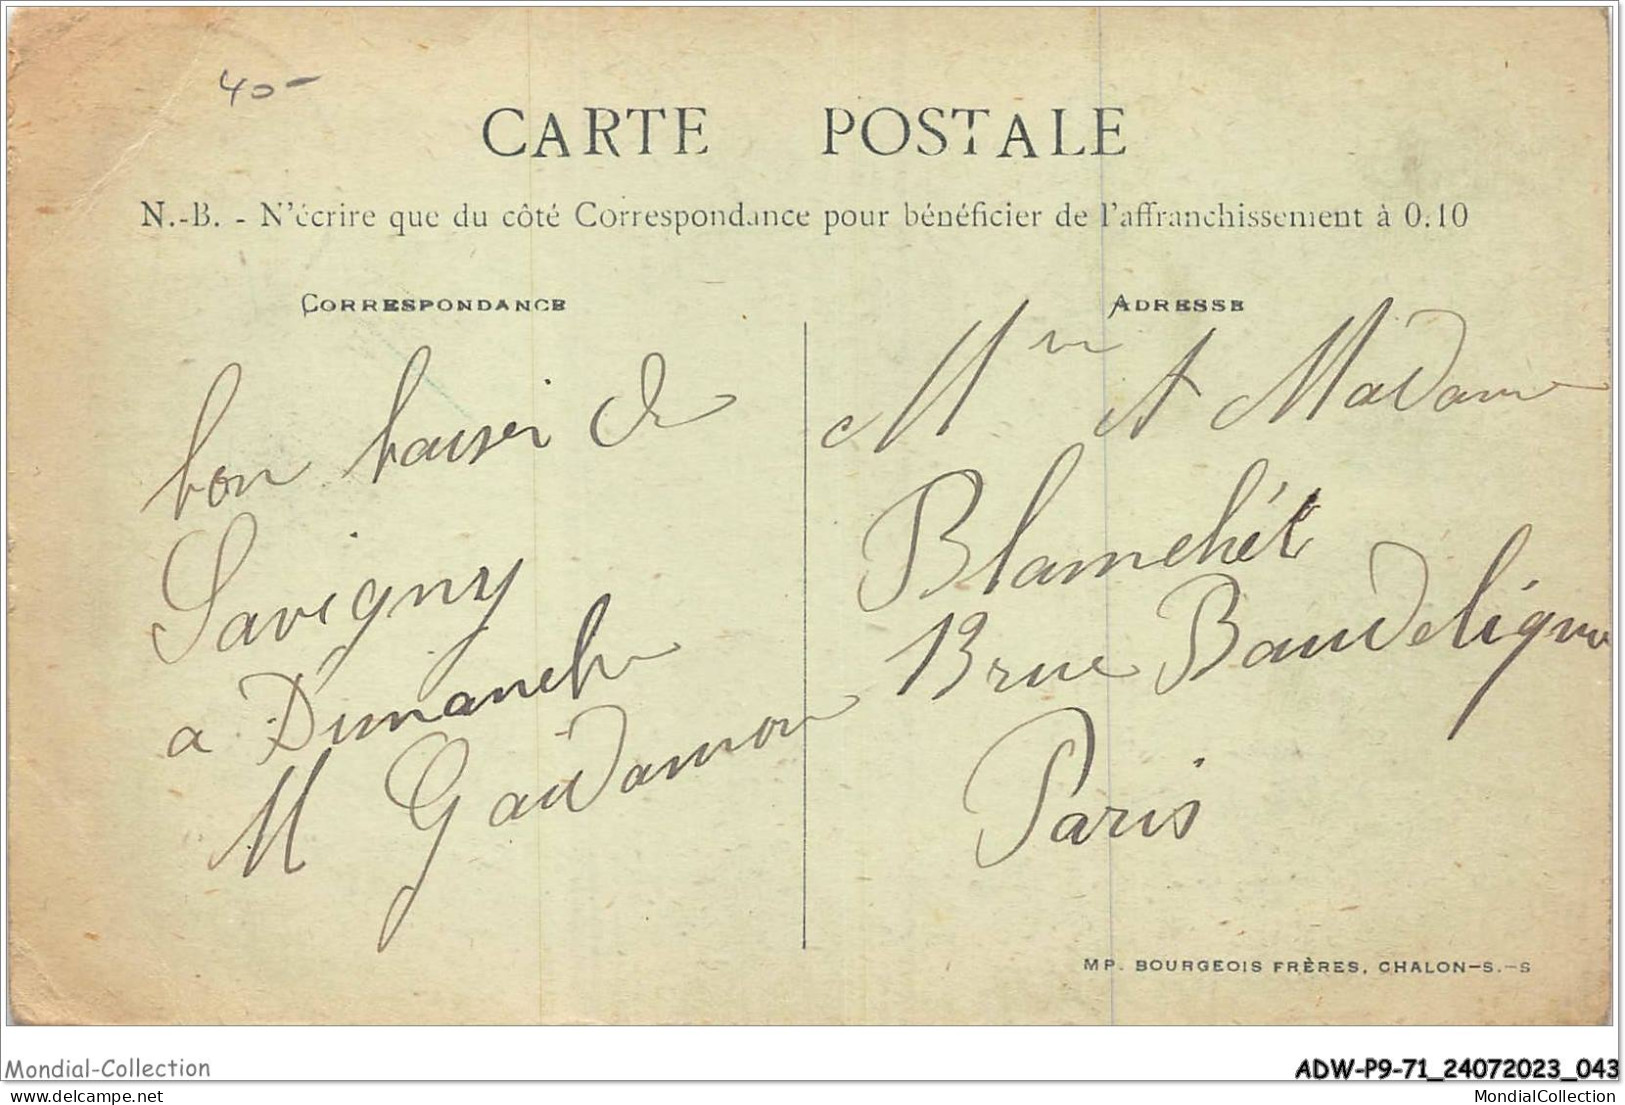 40-
CARTE POSTALE
N.-B. - N'écrire que du côté Correspondance pour bénéficier de l'affranchissement à 0.10
CORRESPONDANCE
bon baiser de
Savigny
a Dimanche
M Gaudamon
ADRESSE
Mr et Madame
Blanchét
13 rue Baudelique
Paris
MP. BOURGEOIS FRÈRES, CHALON-S.-S
Mondial-Collection
ADW-P9-71_24072023_043
delcampe.net
MondialCollection